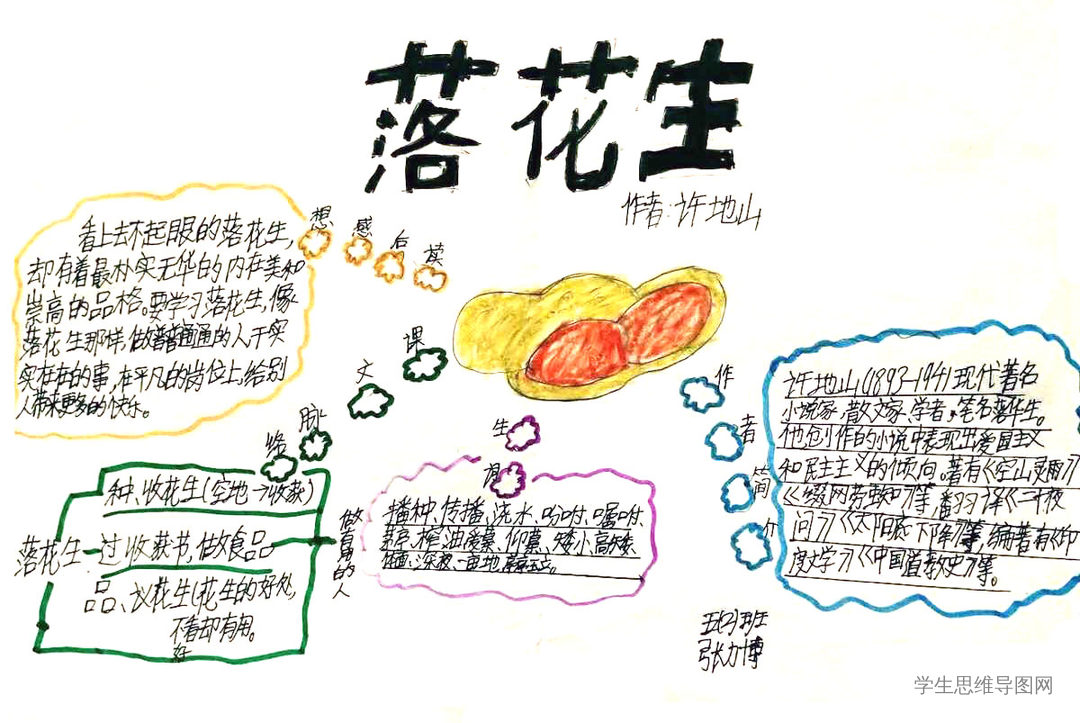 落花生
作者:许地山
读后感想
看上去不起眼的落花生,
却有着最朴实无华的内在美和
崇高的品格。要学习落花生,像
落花生那样,做普普通通的人干实
实在在的事,在平凡的岗位上,给别
人带来更多的快乐。
课文脉络
种、收花生(空地→收获)
落花生 过收获书,做食品
品、议花生(花生的好处,
不好看却有用。
做有用的人
生词
播种、传播、浇水、吩咐、嘱咐、
榨油、爱慕、仰慕、矮小、高矮、
深夜、亩地、
作者简介
许地山(1893-1941)现代著名
小说家、散文家、学者。笔名落华生。
他创作的小说中表现出爱国主义
和民主主义的倾向。著有《空山灵雨》
《缀网劳蛛》等,翻译《二十夜
问》《太阳底下降》等,编著有《印
度文学》《中国道教史》等。
五(2)班
张力博
学生思维导图网